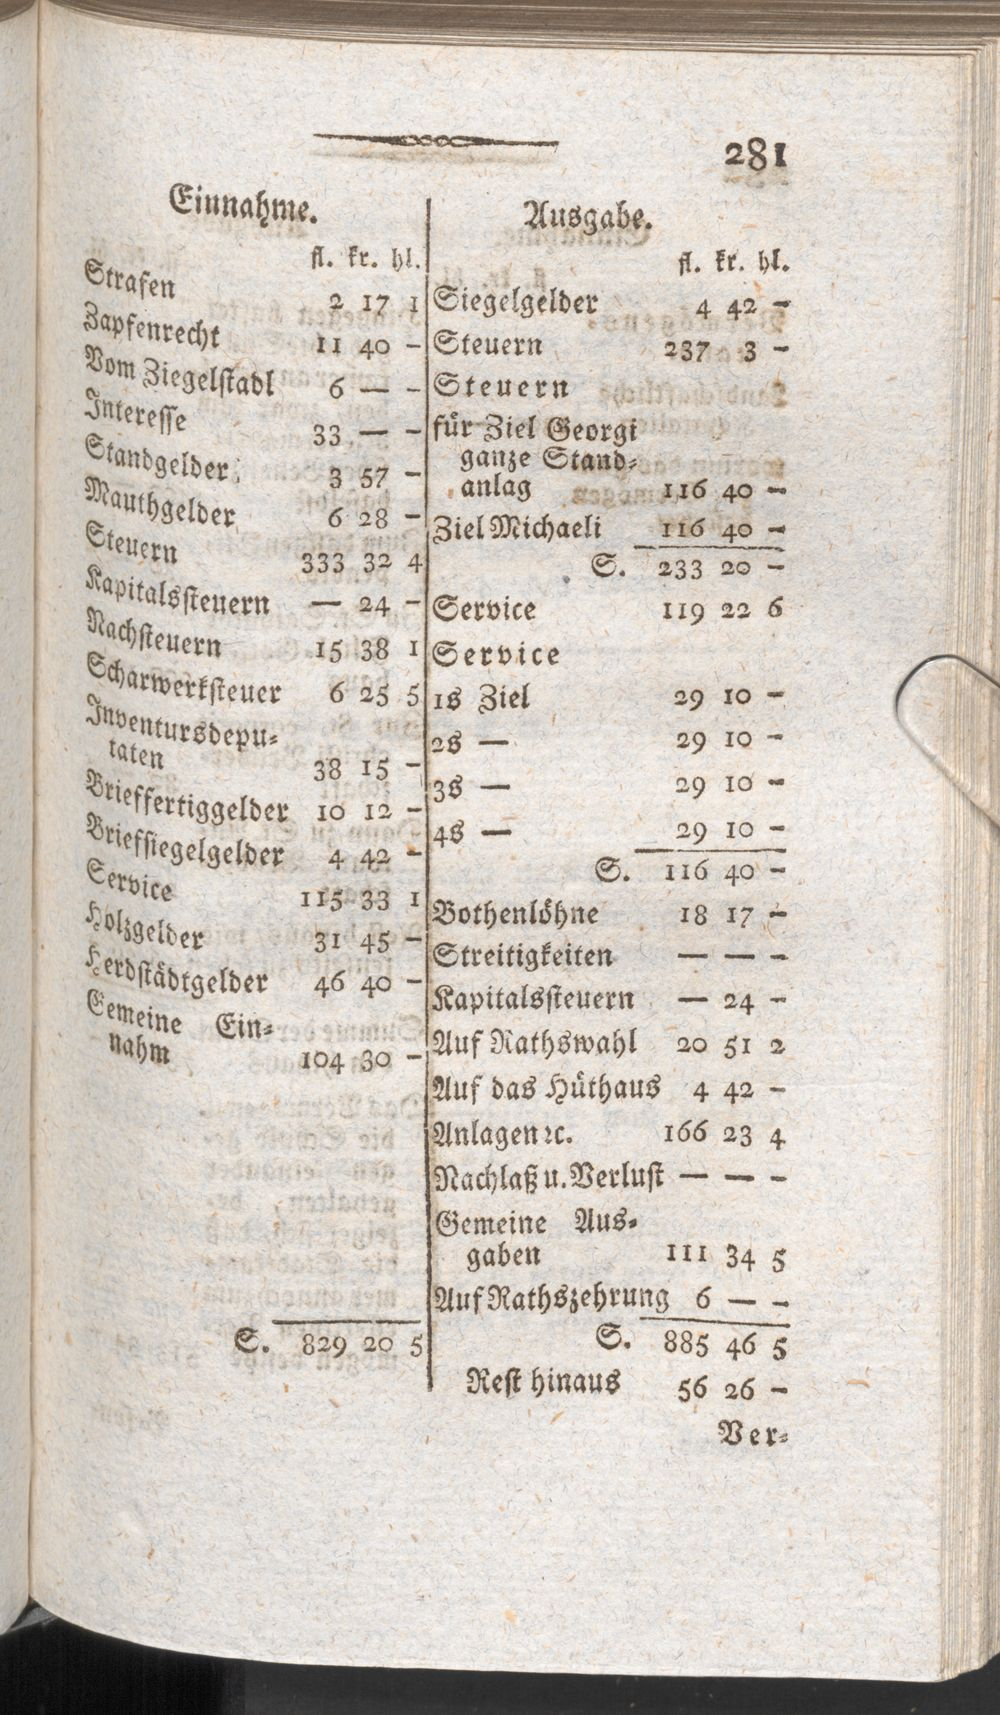 281
Einnahme.
fl. kr. hl.
Strafen 2 17 1
Zapfenrecht 11 40 -
Vom Ziegelstadl 6 — -
Interesse 33 — -
Standgelder 3 57 -
Mauthgelder 6 28 -
Steuern 333 32 4
Kapitalssteuern — 24 -
Nachsteuern 15 38 1
Scharwerksteuer 6 25 5
Inventursdepu-
taten 38 15 -
Brieffertiggelder 10 12 -
Briefsiegelgelder 4 42 -
Service 115 33 1
Holzgelder 31 45 -
Herdstädtgelder 46 40 -
Gemeine Ein-
nahm 104 30 -
S. 829 20 5
Ausgabe.
fl. kr. hl.
Siegelgelder 4 42 -
Steuern 237 3 -
Steuern
für Ziel Georgi
ganze Stand-
anlag 116 40 -
Ziel Michaeli 116 40 -
S. 233 20 -
Service 119 22 6
Service
1s Ziel 29 10 -
2s — 29 10 -
3s — 29 10 -
4s — 29 10 -
S. 116 40 -
Bothenlöhne 18 17 -
Streitigkeiten — — -
Kapitalssteuern — 24 -
Auf Rathswahl 20 51 2
Auf das Hüthaus 4 42 -
Anlagen ꝛc. 166 23 4
Nachlaß u. Verlust — — -
Gemeine Aus-
gaben 111 34 5
Auf Rathszehrung 6 — -
S. 885 46 5
Rest hinaus 56 26 -
Ver-